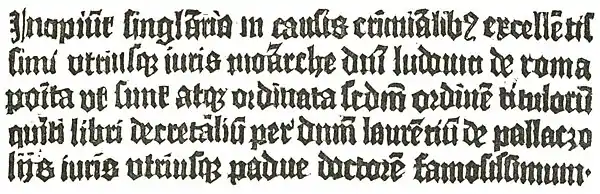 Incipiūt singlāria in causis crimīalibꝰ excellētis
simi vtriusqꝫ iuris moārche dn̄i ludouici de roma
posita vt sunt atqꝫ ordinata scdm̄ ordinē titulorū
quīti libri decretaliū per dn̄m laurētiū de pallaczo
lijs iuris vtriusqꝫ padue doctorē famosissimum.